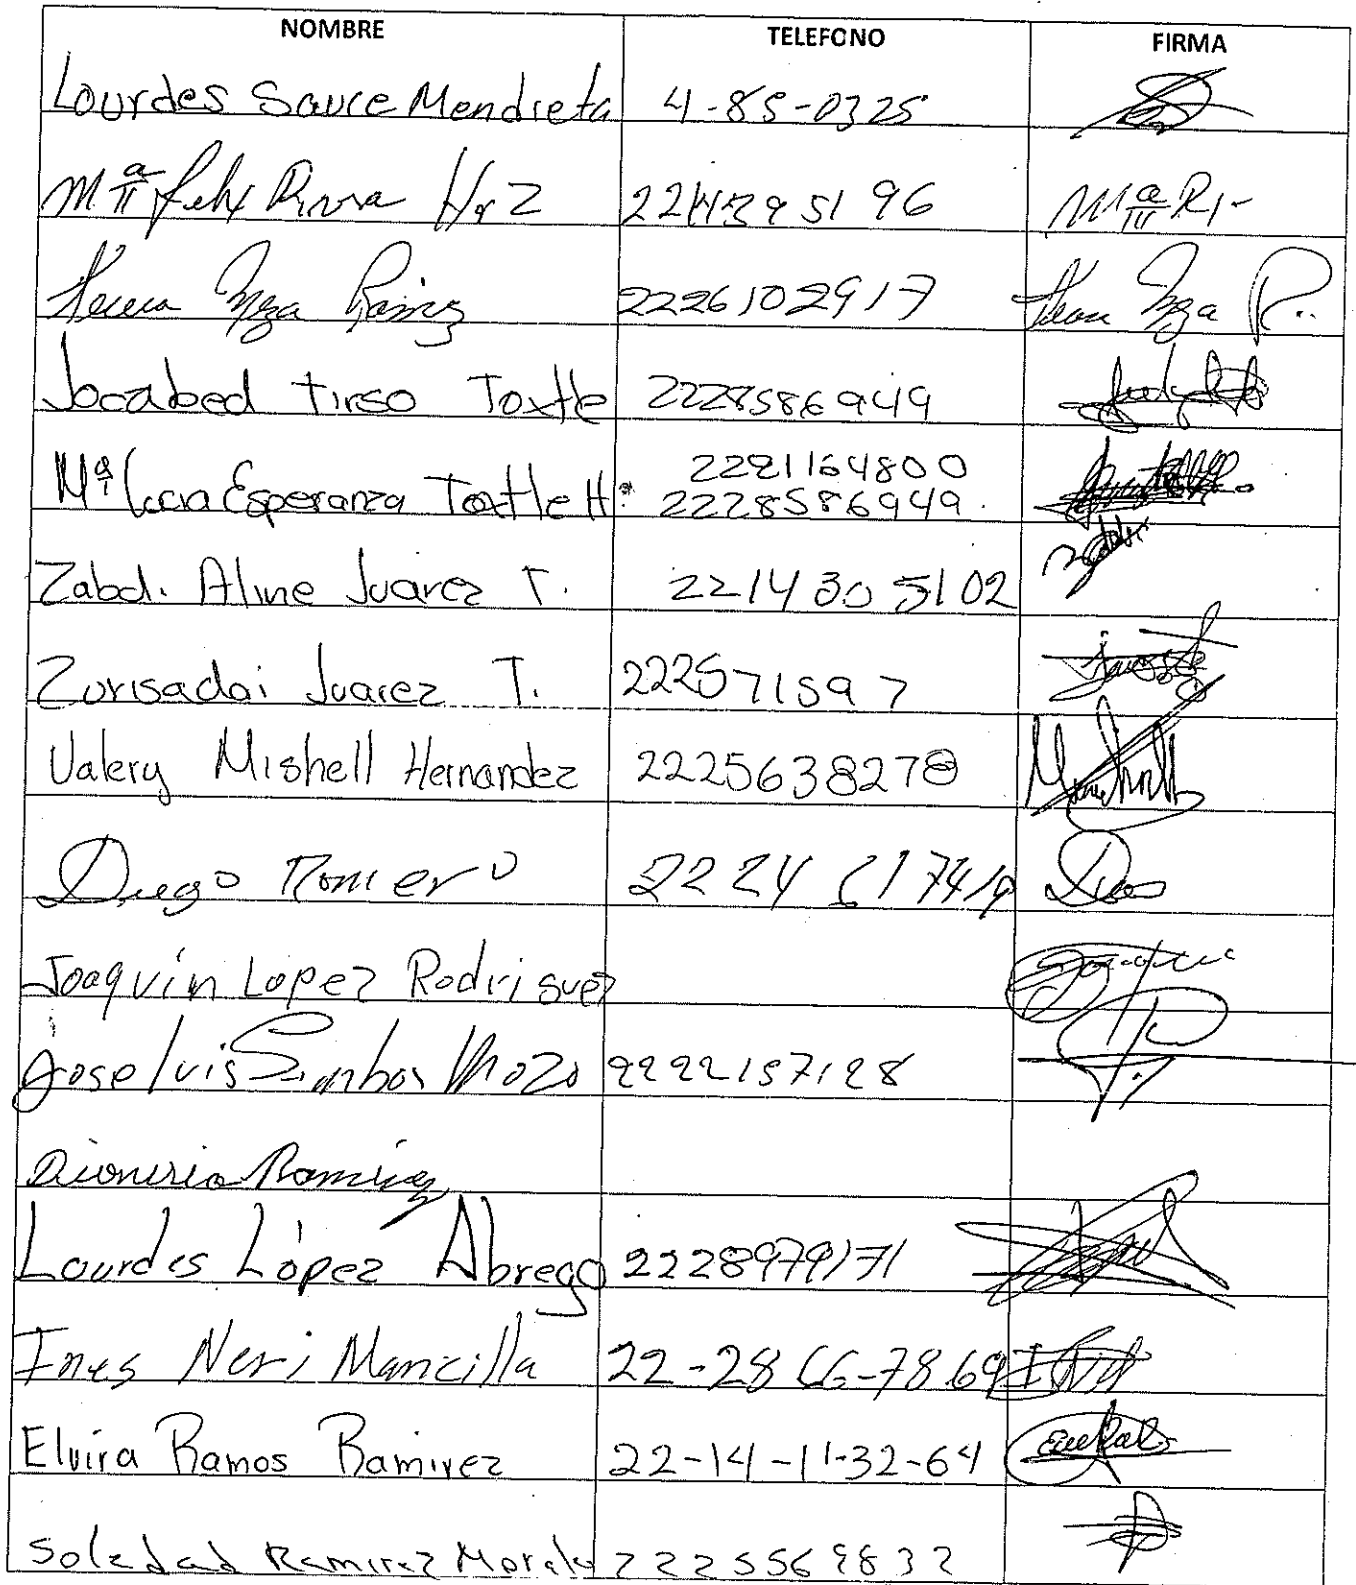 NOMBRE TELEFONO FIRMA
Lourdes Sauce Mendieta 4-85-0325
Mª Felix Rivera Hdz
2226102917
Jocabed Tirso Toxtle 2228586949
2221164800
Mª Lucia Esperanza Toxtle H. 2228586949.
Zabdi Aline Juarez T. 2214305102
Zurisadai Juarez T. 222571597
Valery Mishell Hernandez 2225638278
Diego Romero
Joaquín Lopez Rodriguez
Jose luis 2222157128
Dionisio Ramirez
Lourdes López Abrego 2228979171
Ines Neri Mancilla 22-28 66-78 69
Elvira Ramos Ramirez 22-14-11-32-64
Soledad Ramirez Morales 2225569832